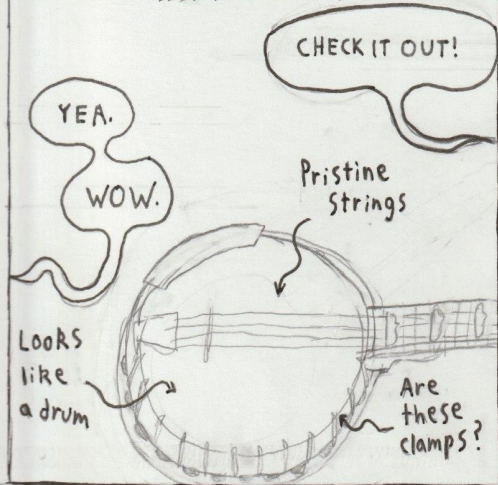 CHECK IT OUT!
YEA.
WOW.
Pristine
Strings
Looks
like
a drum
Are
these
clamps?